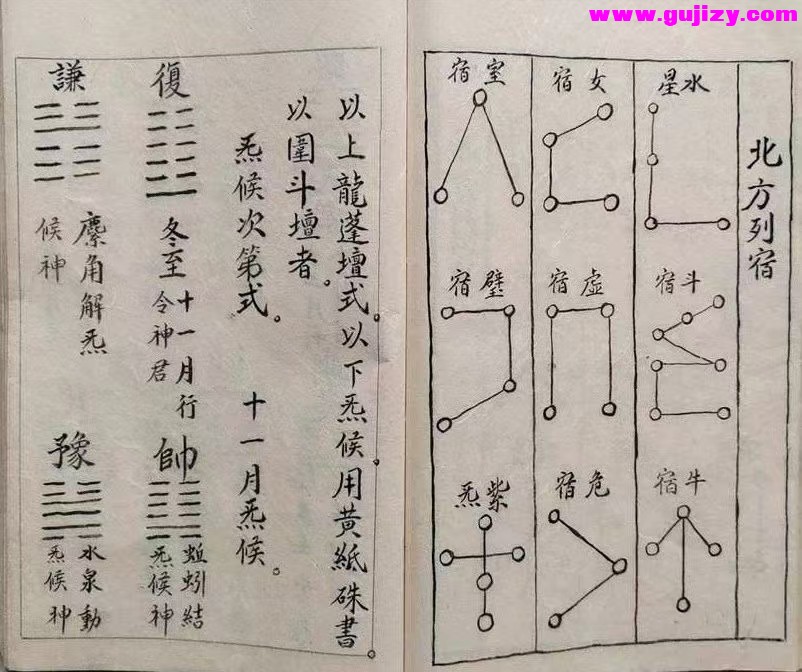 www.gujizy.com
北方列宿
水星
斗宿
牛宿
女宿
虚宿
危宿
室宿
璧宿
紫炁
以上龍蓬壇式。以下炁候用黃紙硃書。
以圍斗壇者。
炁候次第式。 十一月炁候。
復
冬至
十一月行
令神君
帥
蚯蚓結
炁候神
謙
麋角解炁
候神
豫
水泉動
炁候神